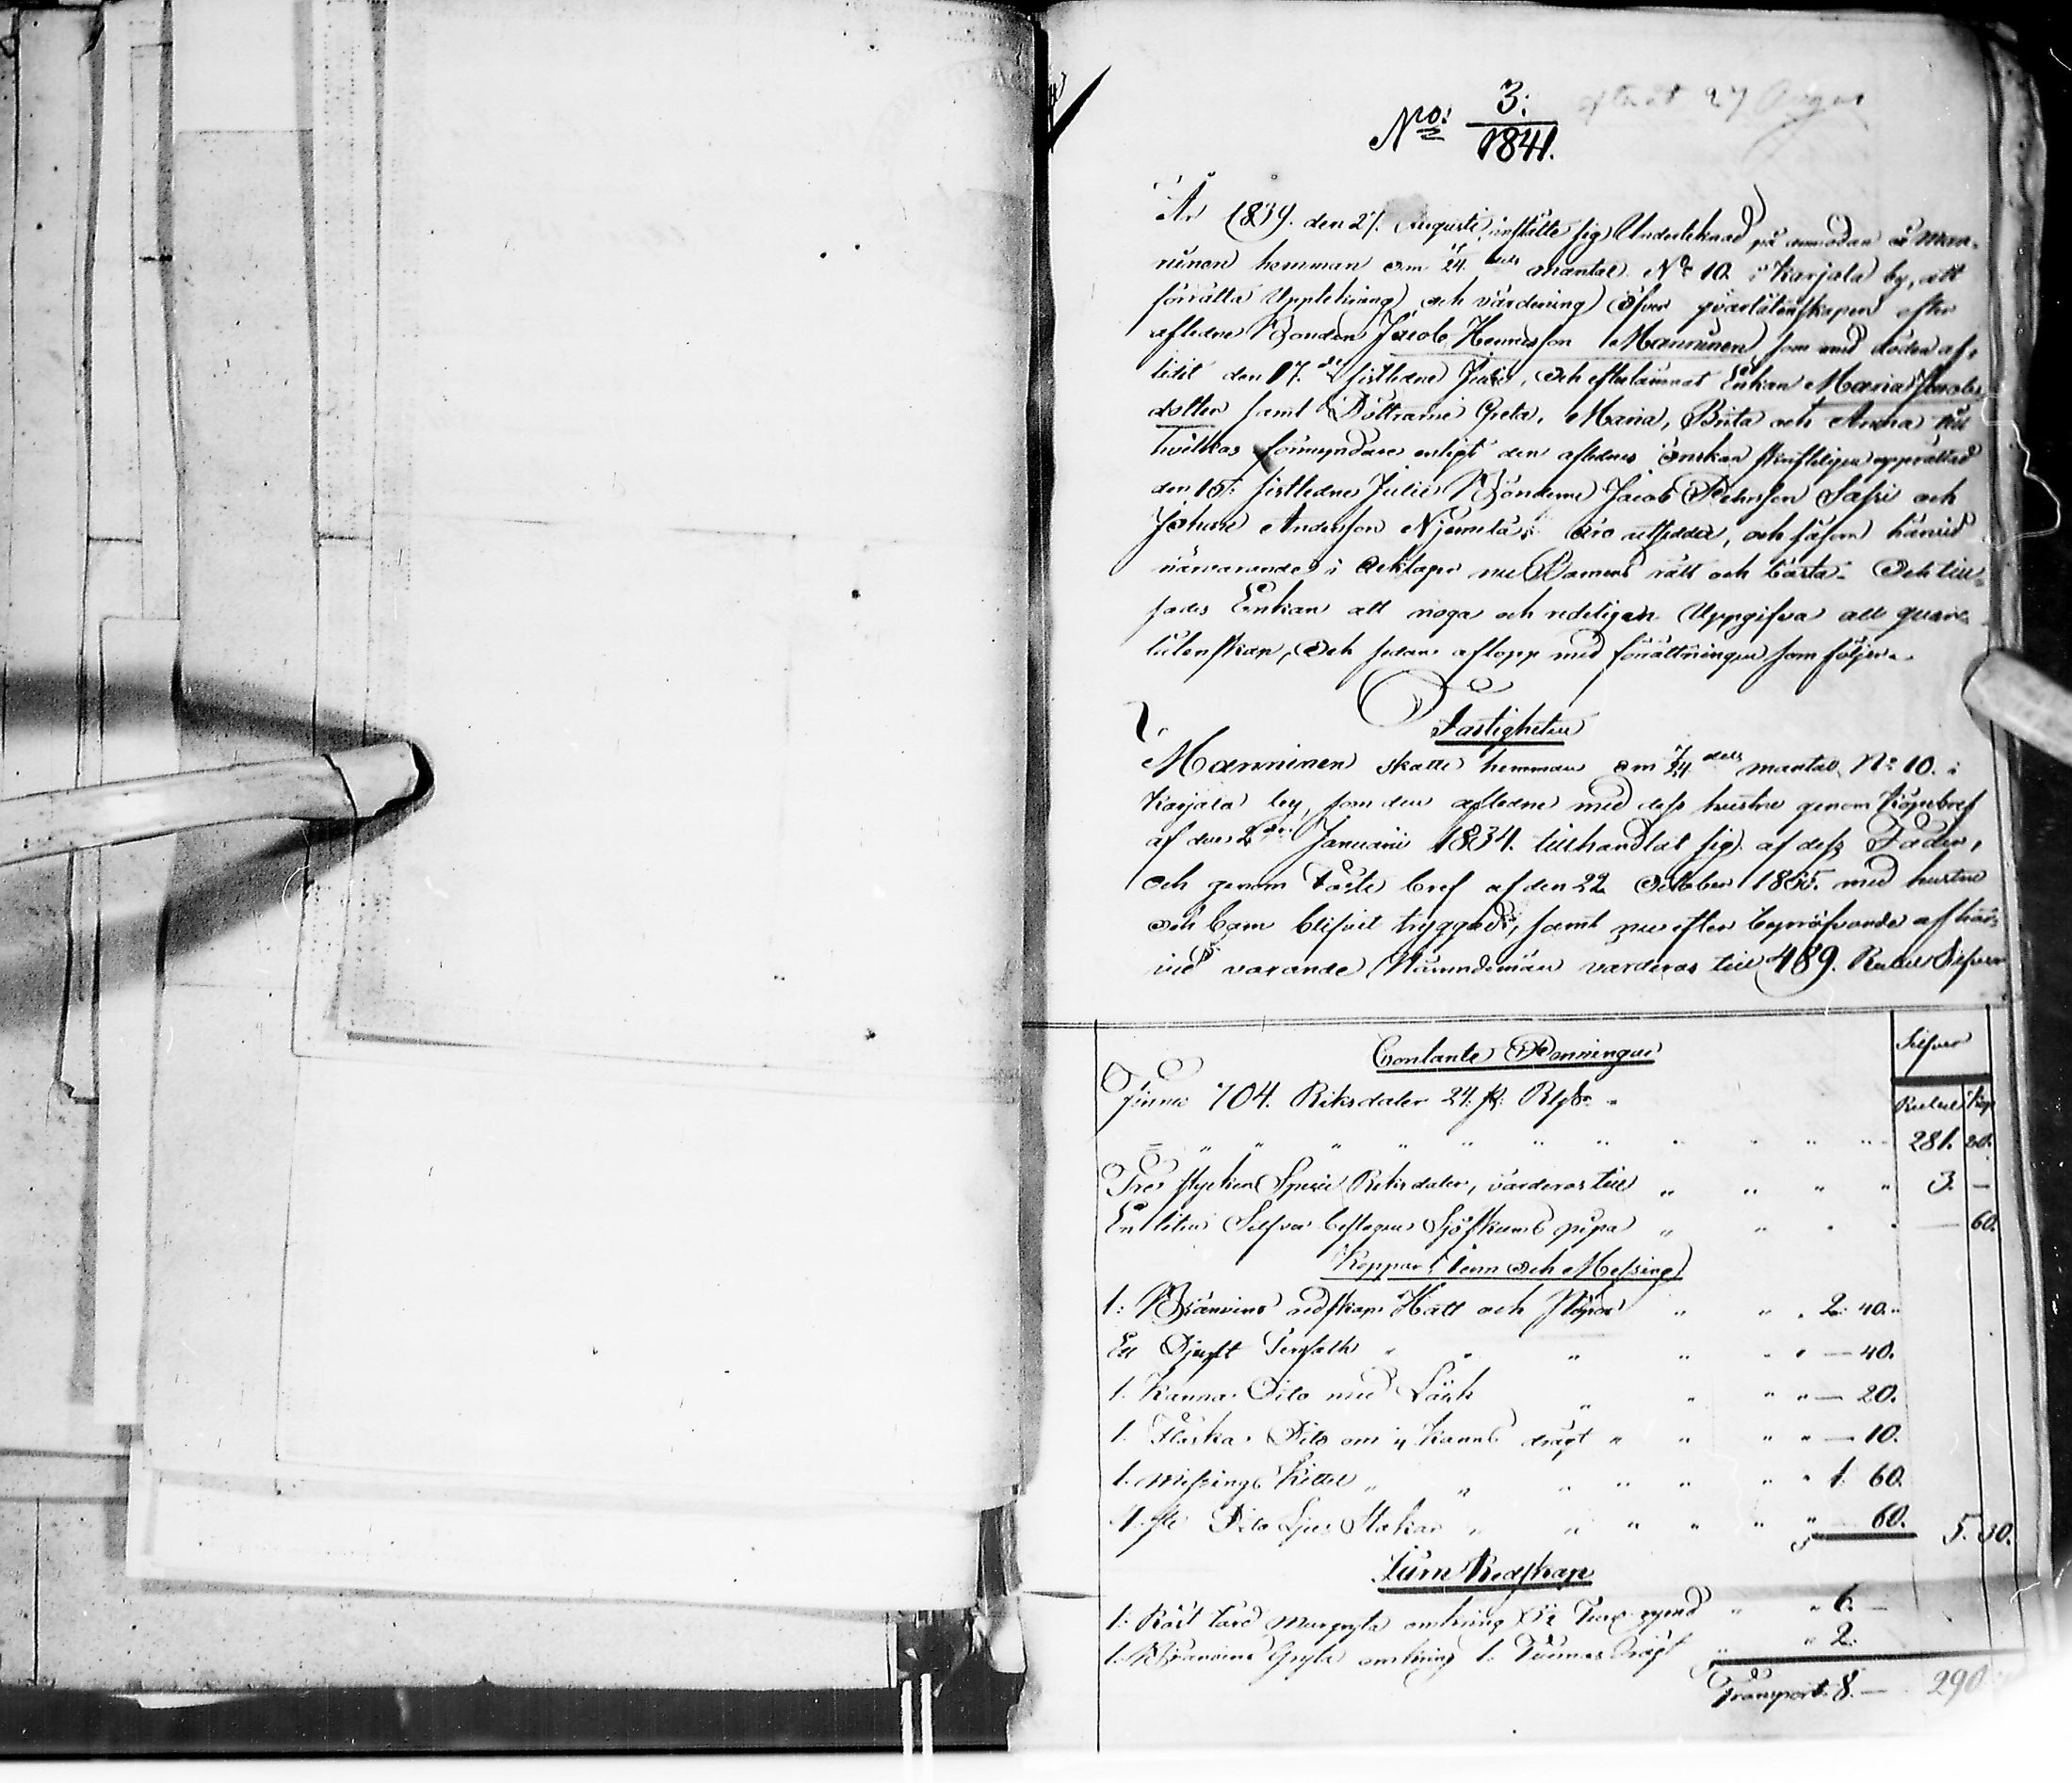 No: 3:/1841.
27 Augu
År 1839. den 27. Augusti, instälte sig Underteknad på anmodan å Man-
ninen hemman om 7/24 dels mantal No 10. i Karjala by, att
förrätta Uppteckning och värdering öfver qvarlåtenskapen efter
aflidne Bonden Jacob Henricsson Manninen, som med döden af-
lidit den 17.de sistledne Julii, och efterlämnat Enkan Maria Jacobs
dotter samt Döttrarne Greta, Maria, Brita och Anna till
hvilkas förmyndare enligt den aflidnes önskan skriftligen upprättad
den 15: sistledne Julii Bönderne Jacob
Johan Andersson äro utsedde, och såsom härvid
närvarande i akttager Barnens rätt och bästa. Och till-
sades Enkan att noga och redeligen Uppgifva all qvar-
låtenskap, Och sedan aflopp med förrättningen som följer.
Fastigheten
Manninen skatte hemman om 7/24 dels mantal No 10. i
Karjala by, som den aflidne med dess hustru genom Köpebref
af den 2dra Januarii 1834. tillhandlat sig af dess Fader,
Och genom Faste bref af den 22 October 1835. med hustru
och barn blifvit tryggade, samt nu efter bepröfvande af här-
vid varande Nämndemän värderas till 489. Rubel Silfver
Contante Penningar
Silfver
Finnes 704. Riksdaler 24. sk: Rgs.
Rubel Kop
281. 20.
Tre stycken Specie Riksdaler, värderas till " " " " 3. —
En liten Silfver beslagen Sjöskums pipa " " " " — 60.
Koppar, Tenn och Messing
1: Brännvins redskaps Hatt och Pipor " " " 2: 40.
Ett Djupt Tennfath " " " " " " — 40.
1. Kanna Dito med Låck " " " " — 20.
1. Flaska Dito om 1/4 Kanns drägt " " " " — 10.
1. messings Kittel " " " " " " " 1: 60.
4. st: Dito Ljus Stakar " " " " " " 60. 5. 30.
Järn Redskap
1: Murgryta omkring " " 6. —
1. Brännvins Gryta omkring 1. Tunnas drägt " " 2:
Transport. 8. — 290